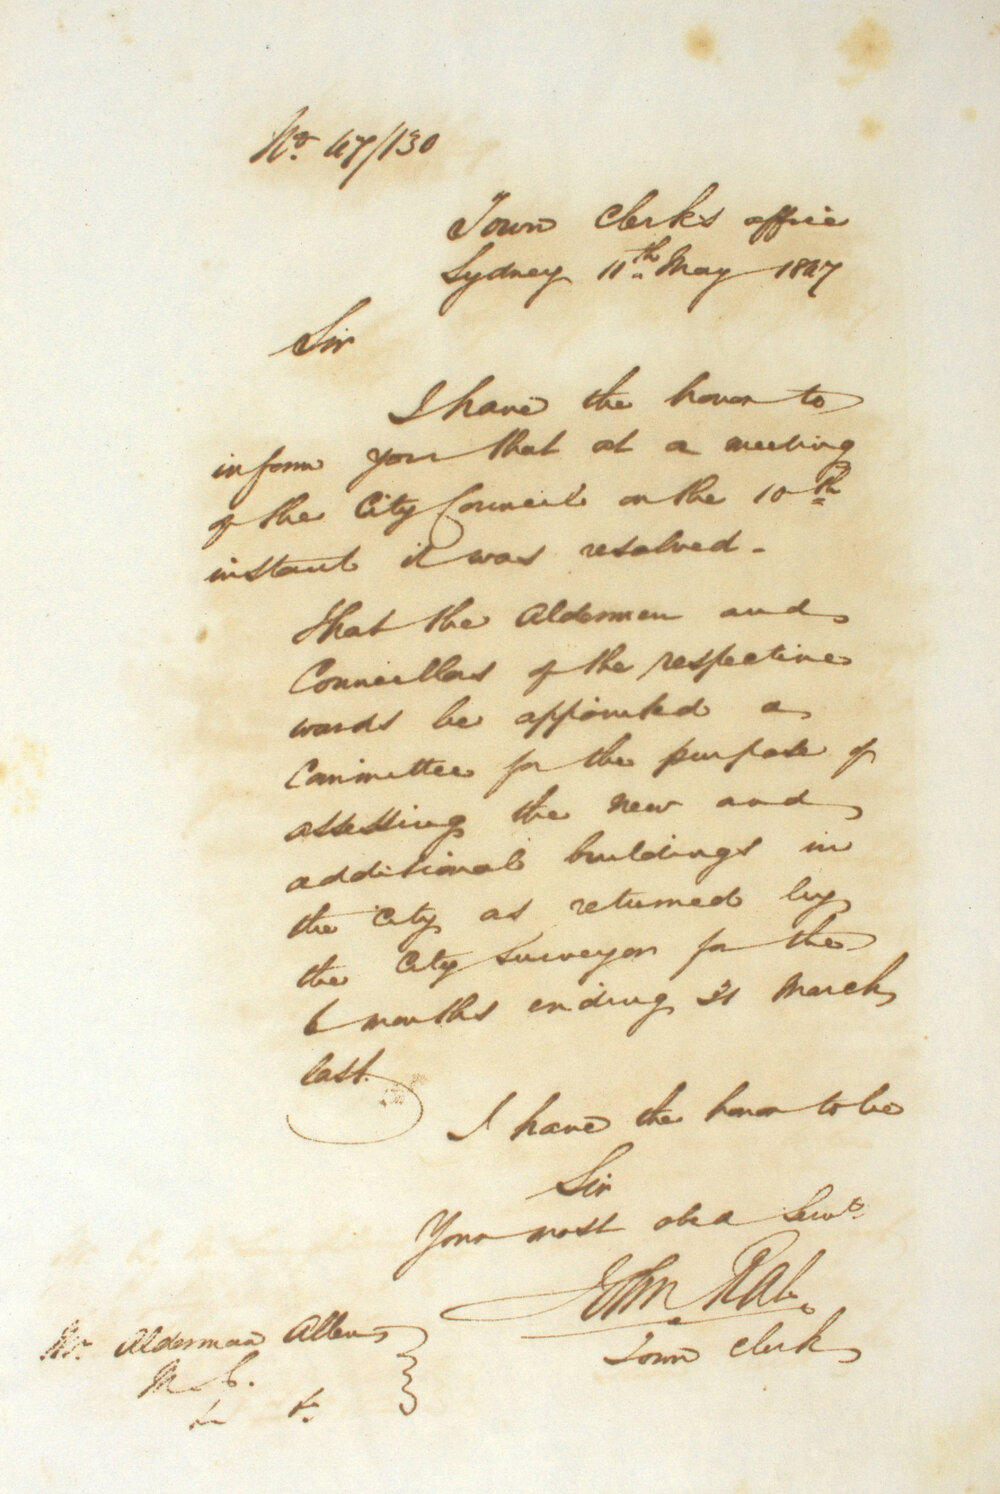 No. 47/130
Town Clerk's office
Sydney 11th May 1847
Sir
I have the honor to
inform you that at a meeting
of the City Council on the 10th
instant it was resolved -
That the Aldermen and
Councillors of the respective
wards be appointed a
Committee for the purpose of
assessing the new and
additional buildings in
the City as returned by
the City Surveyor for the
6 months ending 31 March
last.
I have the honor to be
Sir
Your most obed Servt.
John Rae
Town Clerk
Mr. Alderman Allen
M.C.